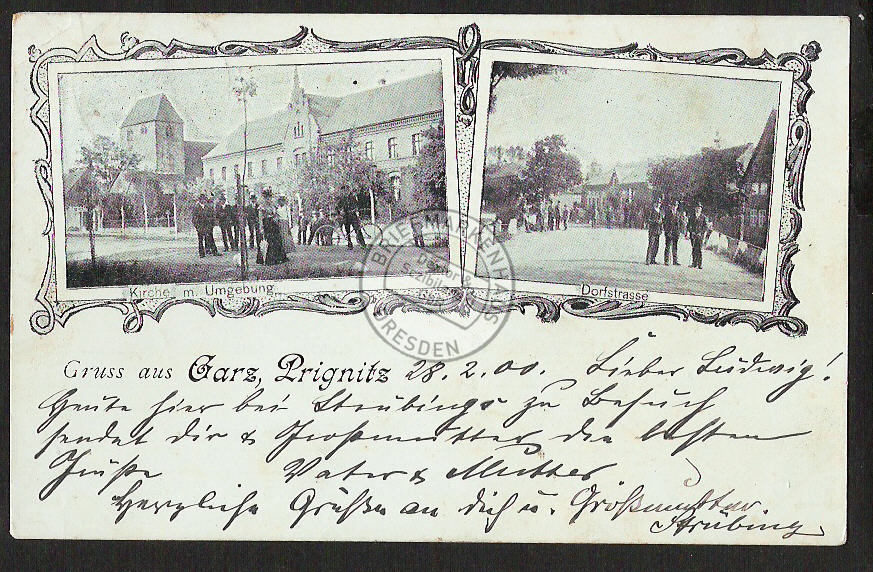 Kirche m. Umgebung
Dorfstrasse
BRIEFMARKENHAUS
DRESDEN
Gruss aus Garz, Prignitz 28.2.00. Lieber Ludwig!
Heute hier bei Strübings zu Besuch
sendet dir & Großmutter die besten
Grüße Vater & Mutter
Herzliche Grüße an dich u. Großmutter.
Strübing